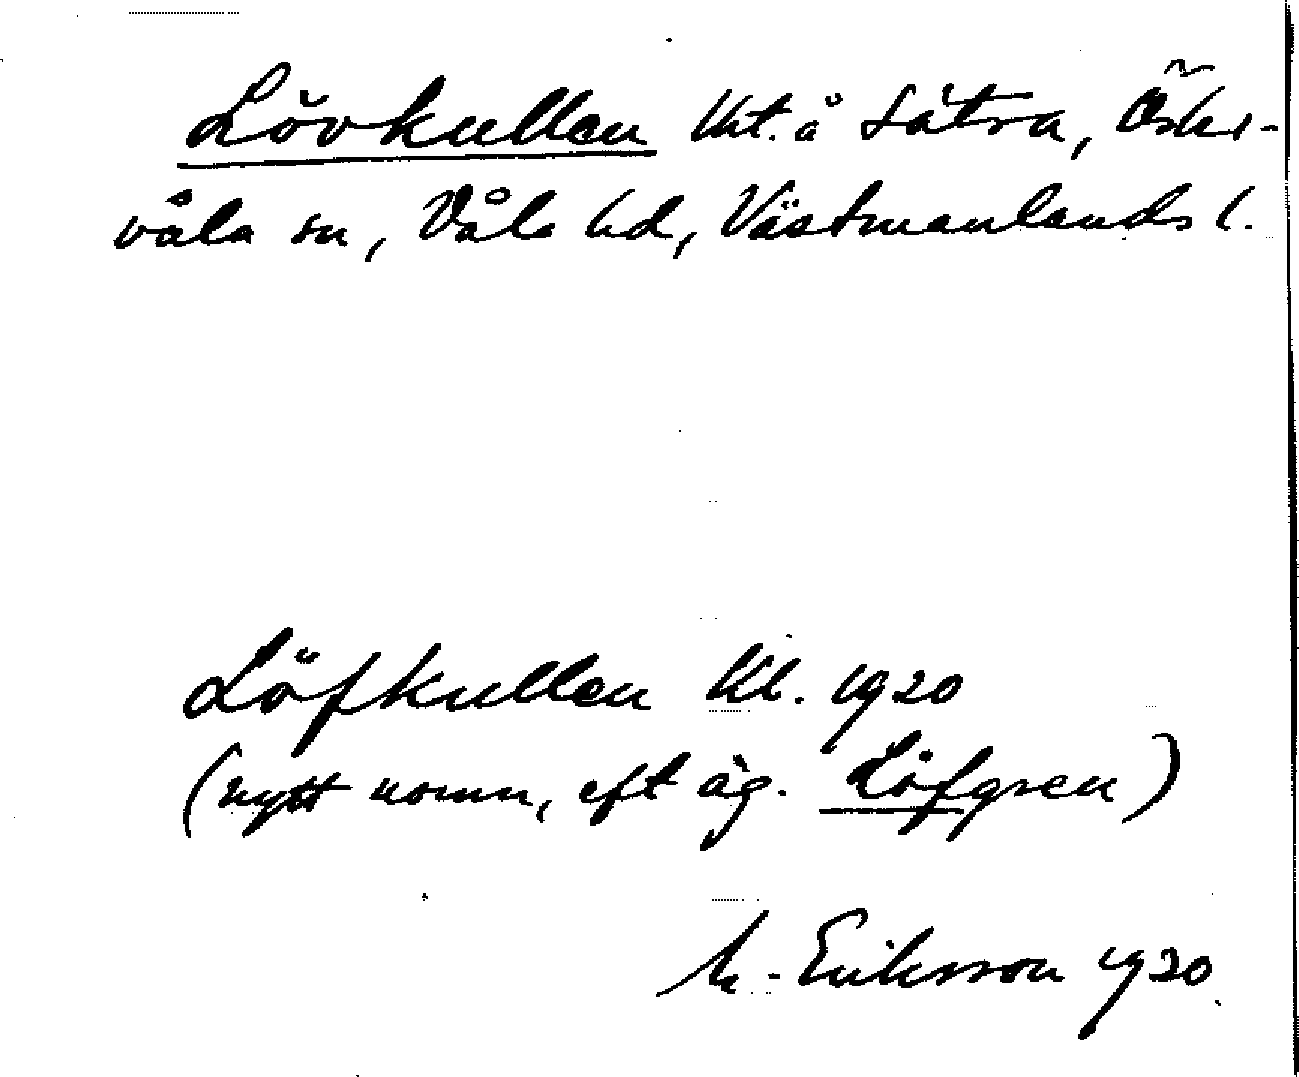 Lövkullen lht. å Sätra, Öster-
våla sn, Våla hd, Västmanlands l.
Löfkullen kl. 1920
(nytt namn, eft äg. Löfgren)
M. Eriksson 1920